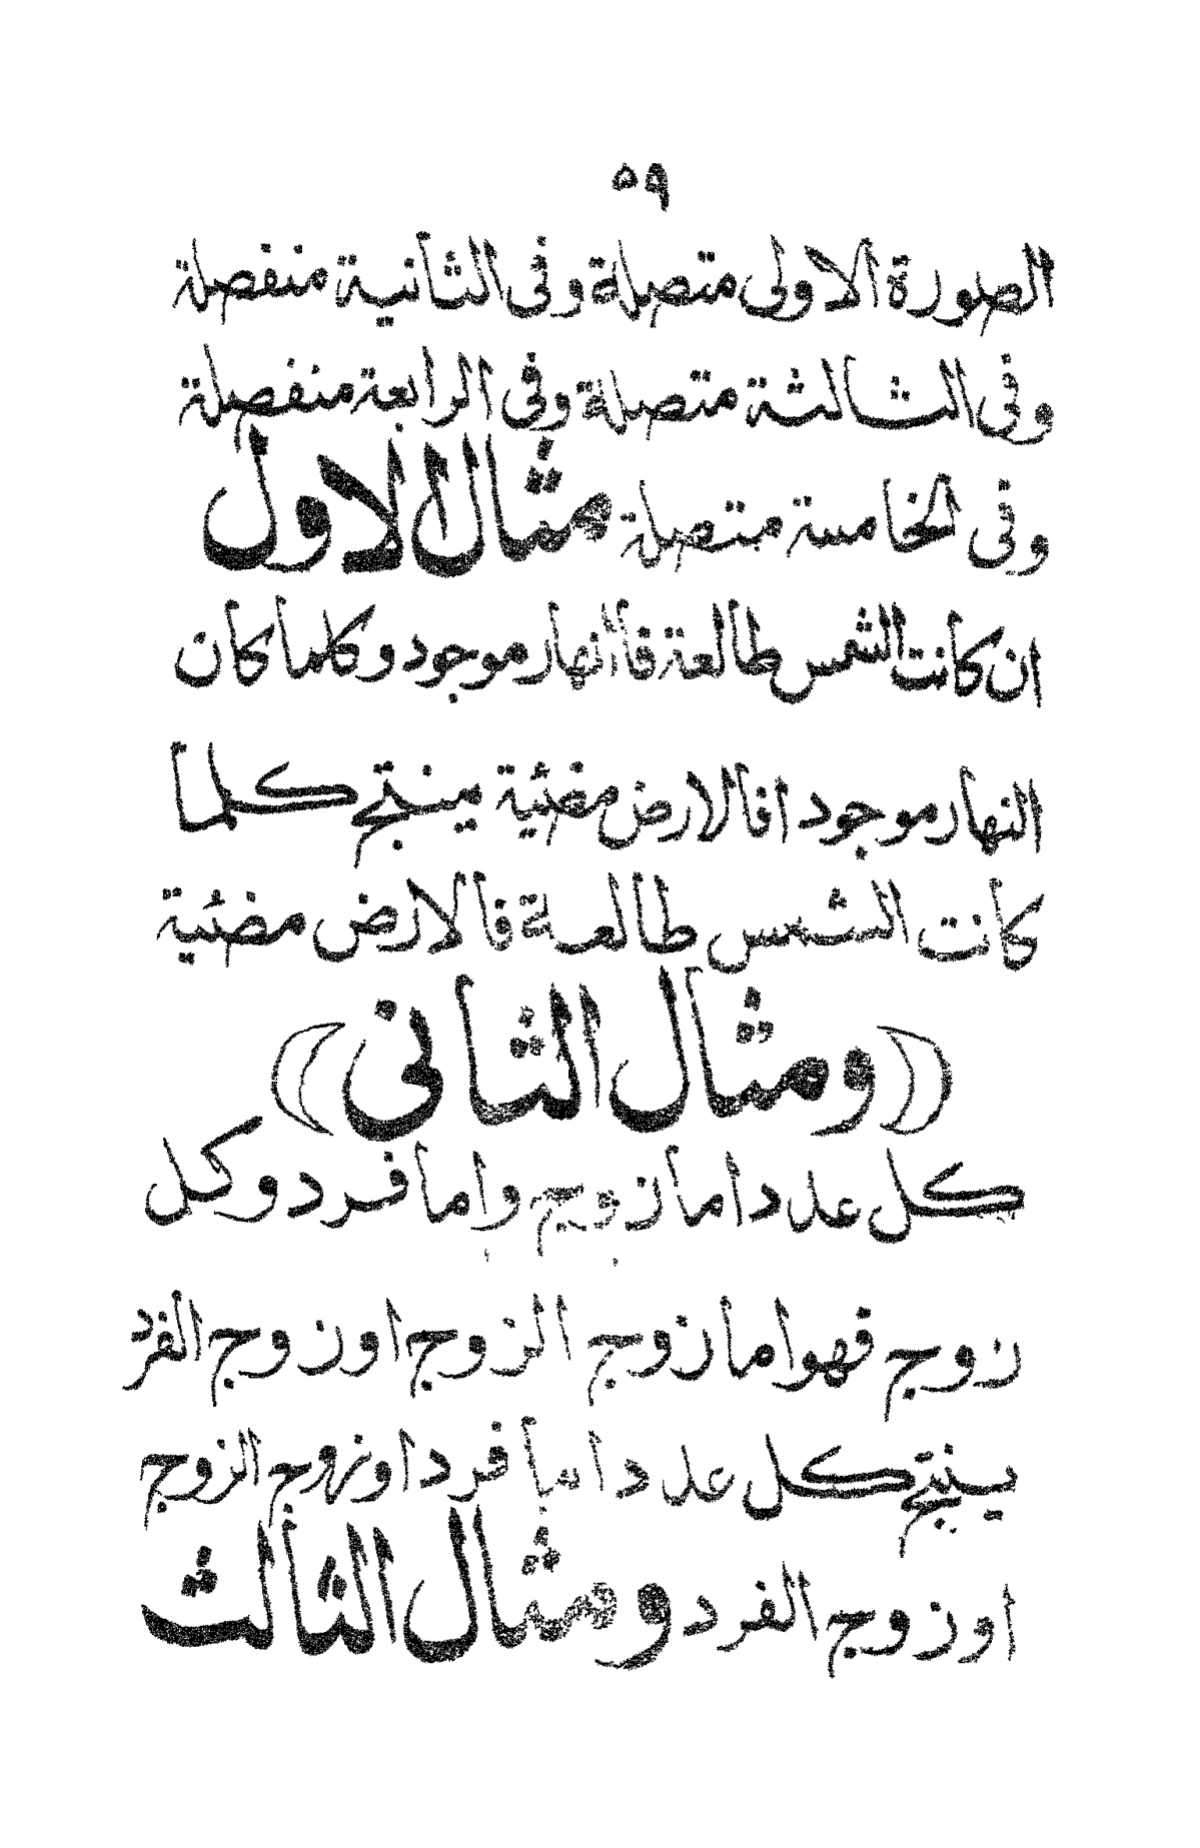 ٥٩
الصورة الاولى متصلة وفى الثانية منفصلة
وفى الثالثة متصلة وفى الرابعة منفصلة
وفى الخامسة متصلة مثال الاول
ان كانت الشمس طالعة فاالنهار موجود وكلما كان
النهار موجود افالارض مضئية ينتج كلما
كانت الشمس طالعة فالارض مضئية
((ومثال الثانى))
كل عدد اما زوج واما فرد وكل
زوج فهو اما زوج الزوج او زوج الفرد
ينتج كل عدد اما فرد او زوج الزوج
او زوج الفرد ومثال الثالث